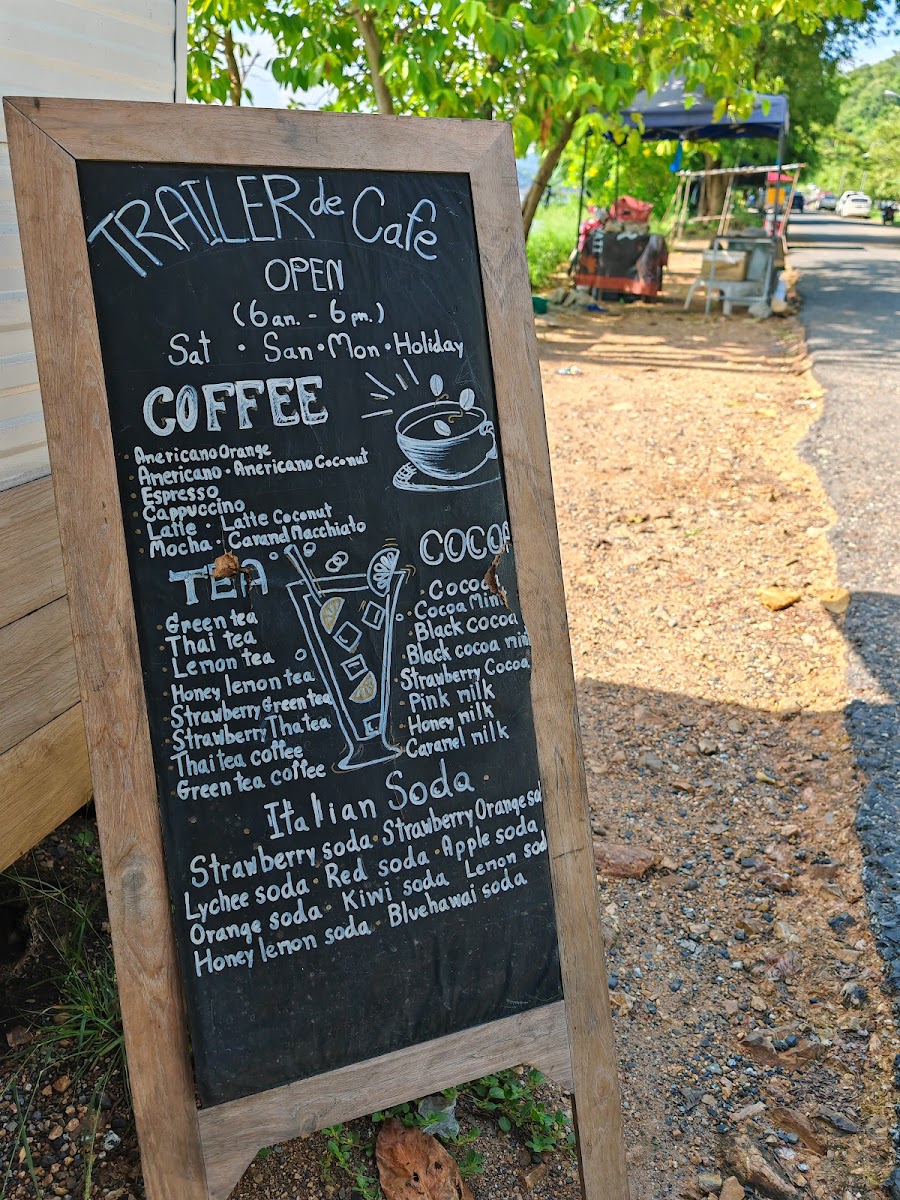 TRAILER de Cafe
OPEN
(6 am. - 6 pm.)
Sat • San • Mon • Holiday
COFFEE
Americano Orange
Americano • Americano Coconut
Espresso
Cappuccino
Latte • Latte Coconut
Mocha • Caramel Macchiato
TEA
Green tea
Thai tea
Lemon tea
Honey lemon tea
Strawberry Green tea
Strawberry Tha tea
Thai tea coffee
Green tea coffee
COCOA
Cocoa
Cocoa Mint
Black cocoa
Black cocoa min
Strawberry Cocoa
Pink milk
Honey milk
Caramel milk
Italian Soda
Strawberry soda • Strawberry Orange
Lychee soda • Red soda • Apple soda
Orange soda • Kiwi soda Lemon sod
Honey lemon soda • Bluehawai soda